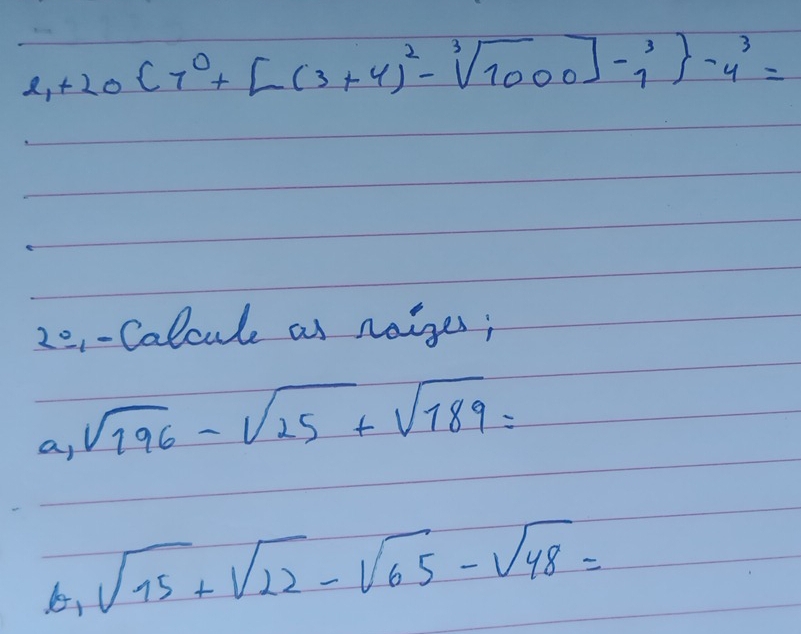 e, +20 {7⁰ + [(3+4)² - ³√1000] - 1³} - 4³ =
2º, - Calcule as raízes;
a, √196 - √25 + √189 =
b, √15 + √22 - √65 - √48 =